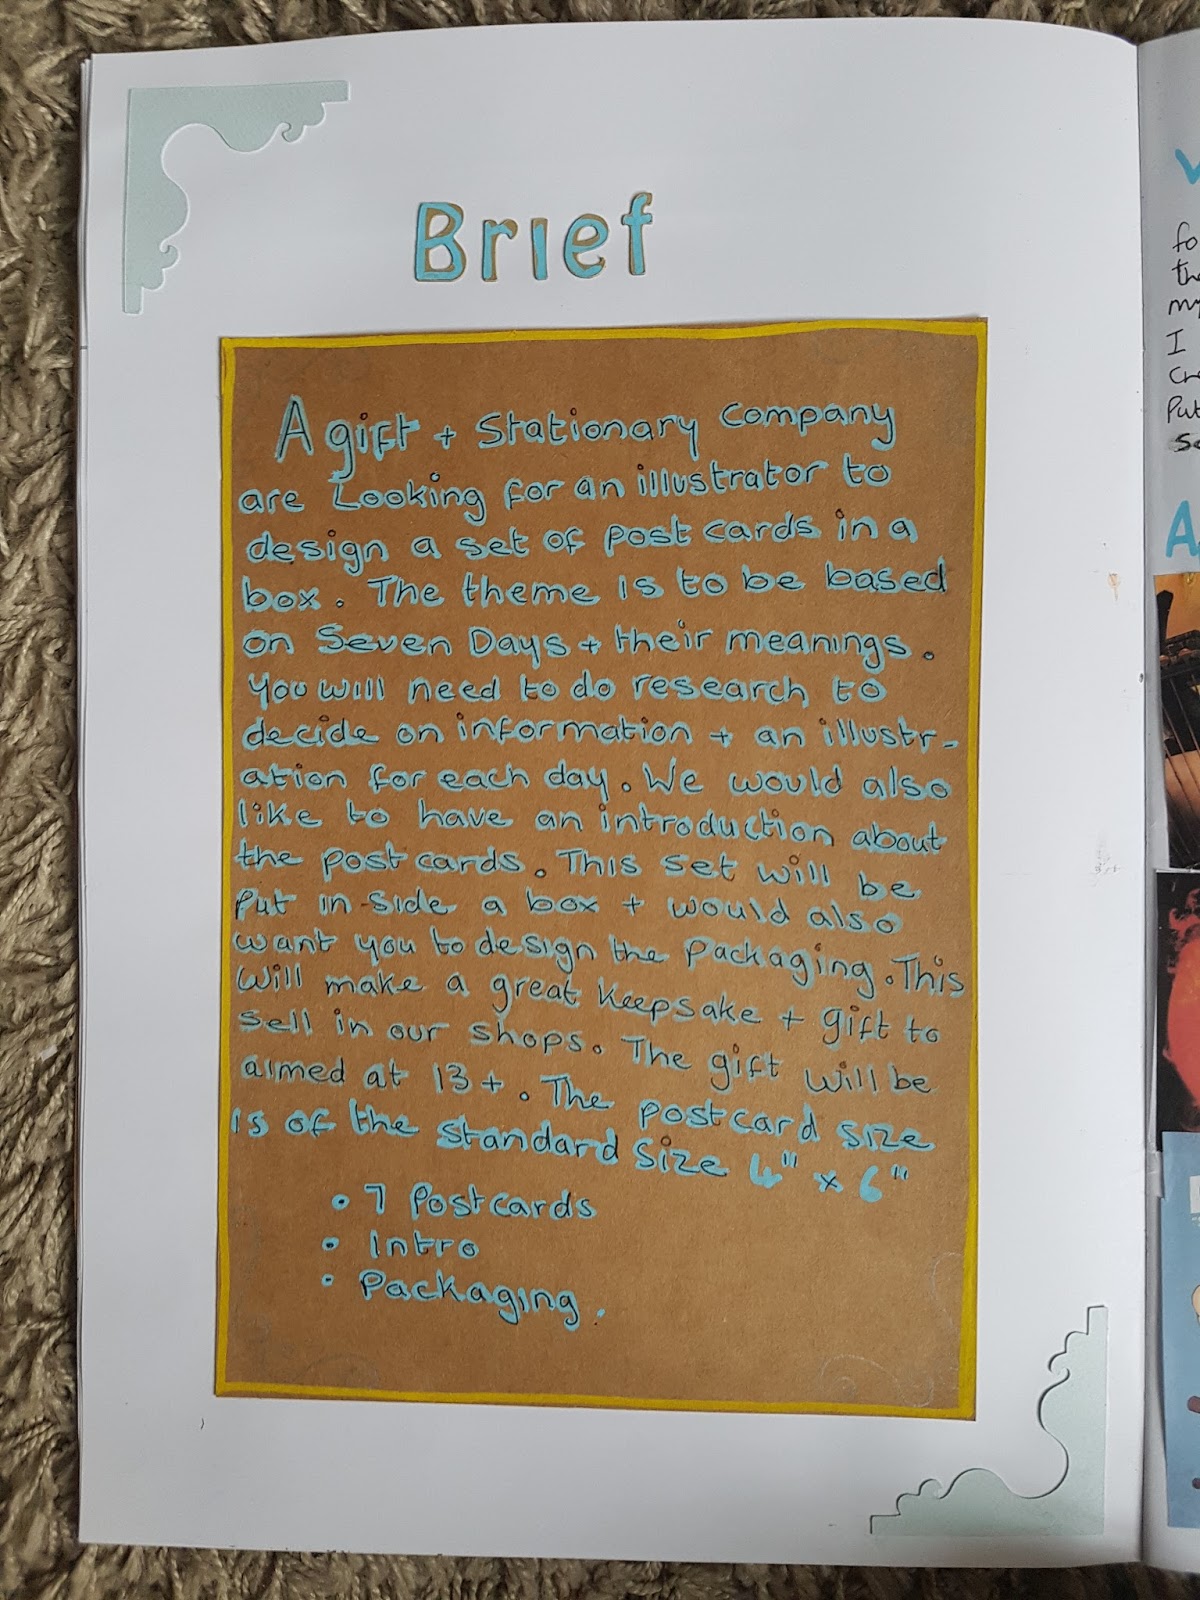 Brief
A gift + Stationary Company
are Looking for an illustrator to
design a set of post cards in a
box. The theme is to be based
on Seven Days + their meanings.
You will need to do research to
decide on information + an illustr-
ation for each day. We would also
like to have an introduction about
the post cards. This set will be
Put in side a box + would also
want you to design the Packaging. This
will make a great keepsake + gift to
sell in our shops. The gift will be
aimed at 13+. The postcard size
is of the standard size 4" x 6"
• 7 Postcards
• Intro
• Packaging.
fo
the
my
I
Cre
Put
So
A